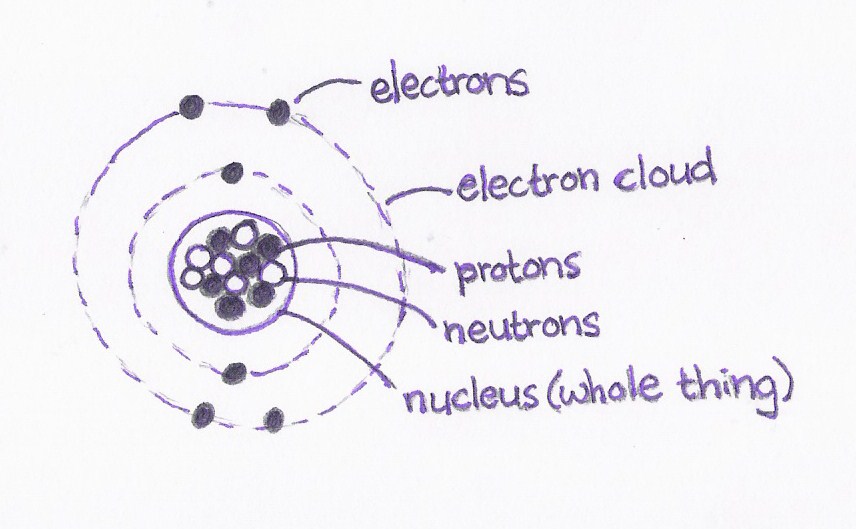 electrons
electron cloud
protons
neutrons
nucleus (whole thing)